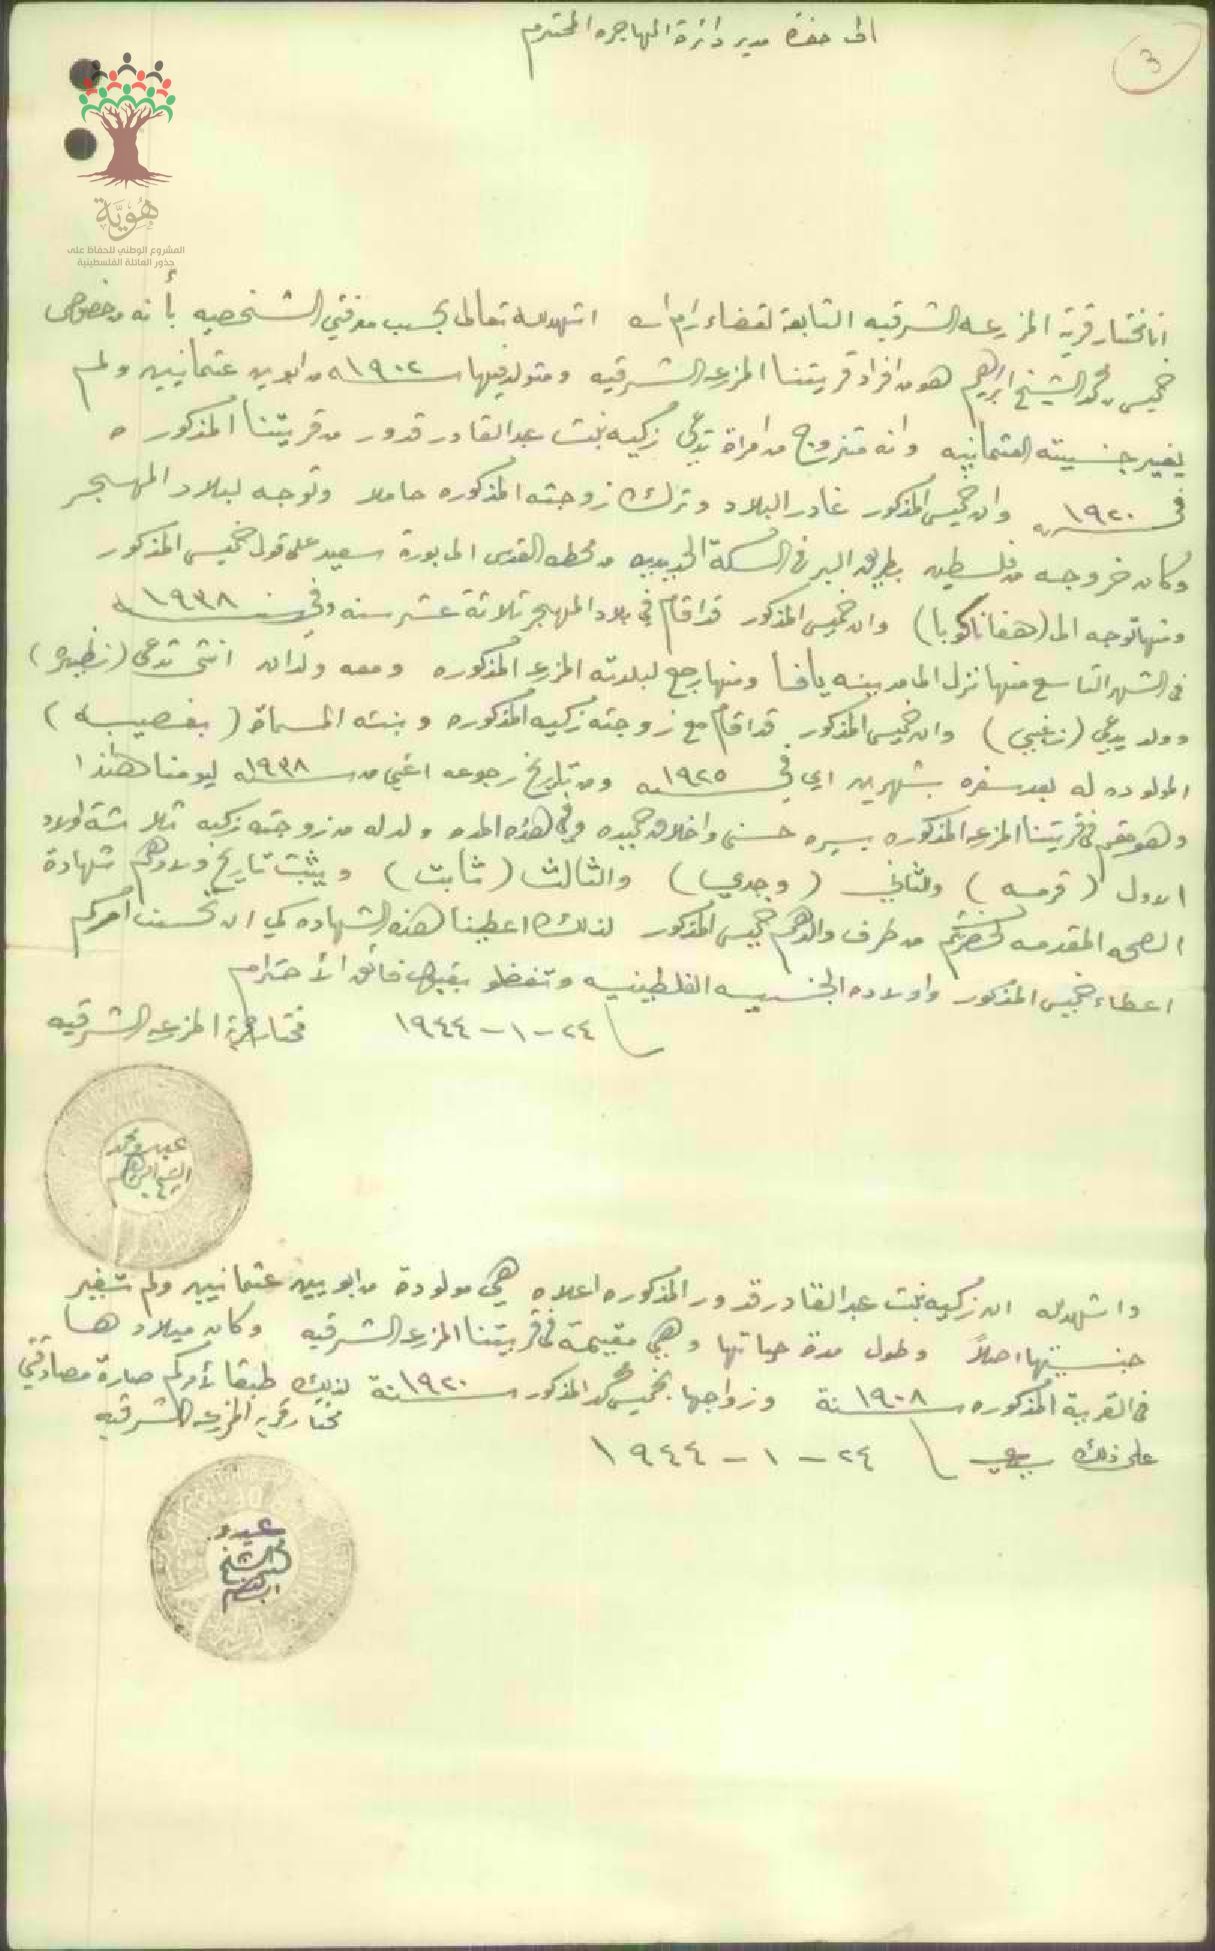 الى حضرة مدير دائرة المهاجره المحترم
3
هُوِيَّة
المشروع الوطني للحفاظ على
جذور العائلة الفلسطينية
انا مختار قرية المزرعه الشرقيه التابعة لقضاء رام الله اشهد لله تعالى بحسب معرفتي الشخصيه بأنه من خصوص
خميس محمد الشيخ ابراهيم هو من افراد قريتنا المزرعه الشرقيه ومتولد فيها سنة ١٩٠٢ من ابوين عثمانيين ولم
يغير جنسيته العثمانيه وانه متزوج من امراة تدعى زكيه بنت عبد القادر قدور من قريتنا المذكوره
في سنة ١٩٢٠ وان خميس المذكور غادر البلاد وترك زوجته المذكوره حاملا وتوجه لبلاد المهجر
وكان خروجه من فلسطين بطريق البر في السكة الحديديه من محطه القدس الى بورة سعيد على قول خميس المذكور
ومنها توجه الى (هفانا كوبا) وان خميس المذكور قد اقام في بلاد المهجر ثلاثة عشر سنه وفي سنة ١٩٣٨
في الشهر التاسع منها نزل الى مدينه يافا ومنها رجع لبلدته المزرعه المذكوره ومعه ولدان انثى تدعى (نظيره)
وولد يدعى (زغبي) وان خميس المذكور قد اقام مع زوجته زكيه المذكوره وبنته المسماة (بغصيبه)
المولوده له بعد سفره بشهرين اي في سنة ١٩٢٥ ومن تاريخ رجوعه اعني من سنة ١٩٣٨ ليومنا هذا
وهو مقيم في قريتنا المزرعه المذكوره بسيره حسنى واخلاق حميده وفي هذه المده ولد له من زوجته زكيه ثلاثة اولاد
الاول (قرمه) والثاني (وجدي) والثالث (ثابت) ويثبت تاريخ ولادتهم شهادة
الصحه المقدمه لحضرتكم من طرف والدهم خميس المذكور لذلك اعطينا هذه الشهاده كي ان تحسنت امركم
اعطاء خميس المذكور واولاده الجنسيه الفلطينيه وتفضلو بقبول فائق الأحترام
٢٤-١-١٩٤٤ مختار قرية المزرعه الشرقيه
عبد ومحمد
الشيخ ابراهيم
واشهد لله ان زكيه بنت عبد القادر قدور المذكوره اعلاه هي مولودة من ابويين عثمانيين ولم تغير
جنسيتها اصلاً وطول مدة حياتها وهي مقيمة في قريتنا المزرعه الشرقيه وكان ميلادها
في القرية المذكوره سنة ١٩٠٨ وزواجها بخميس محمد المذكور سنة ١٩٢٠ لذلك طبقا لأمركم صارة مصادقتي
على ذلك ٢٤-١-١٩٤٤ مختار قرية المزرعه الشرقيه
عبد و
محمد الشيخ
ابراهيم